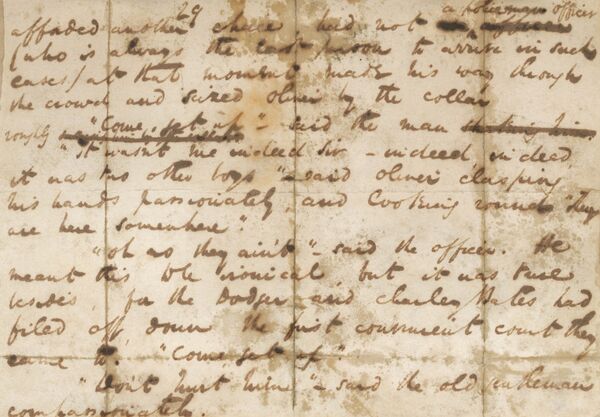 29
a policeman officer
afforded another chace had not
(who is always the last person to arrive in such
cases) at that moment made his way through
the crowd and seized oliver by the collar
"Come, get up" - said the man
roughly
"It wasn't me indeed Sir - indeed, indeed
it was two other boys" - said oliver clasping
his hands passionately and looking round "They
are here somewhere".
"oh no they ain't" - said the officer. He
meant this to be ironical but it was true
besides, for the Dodger and charley Bates had
filed off down the first convenient court they
came to. "Come, get up"
"Don't hurt him" - said the old gentleman
compassionately.